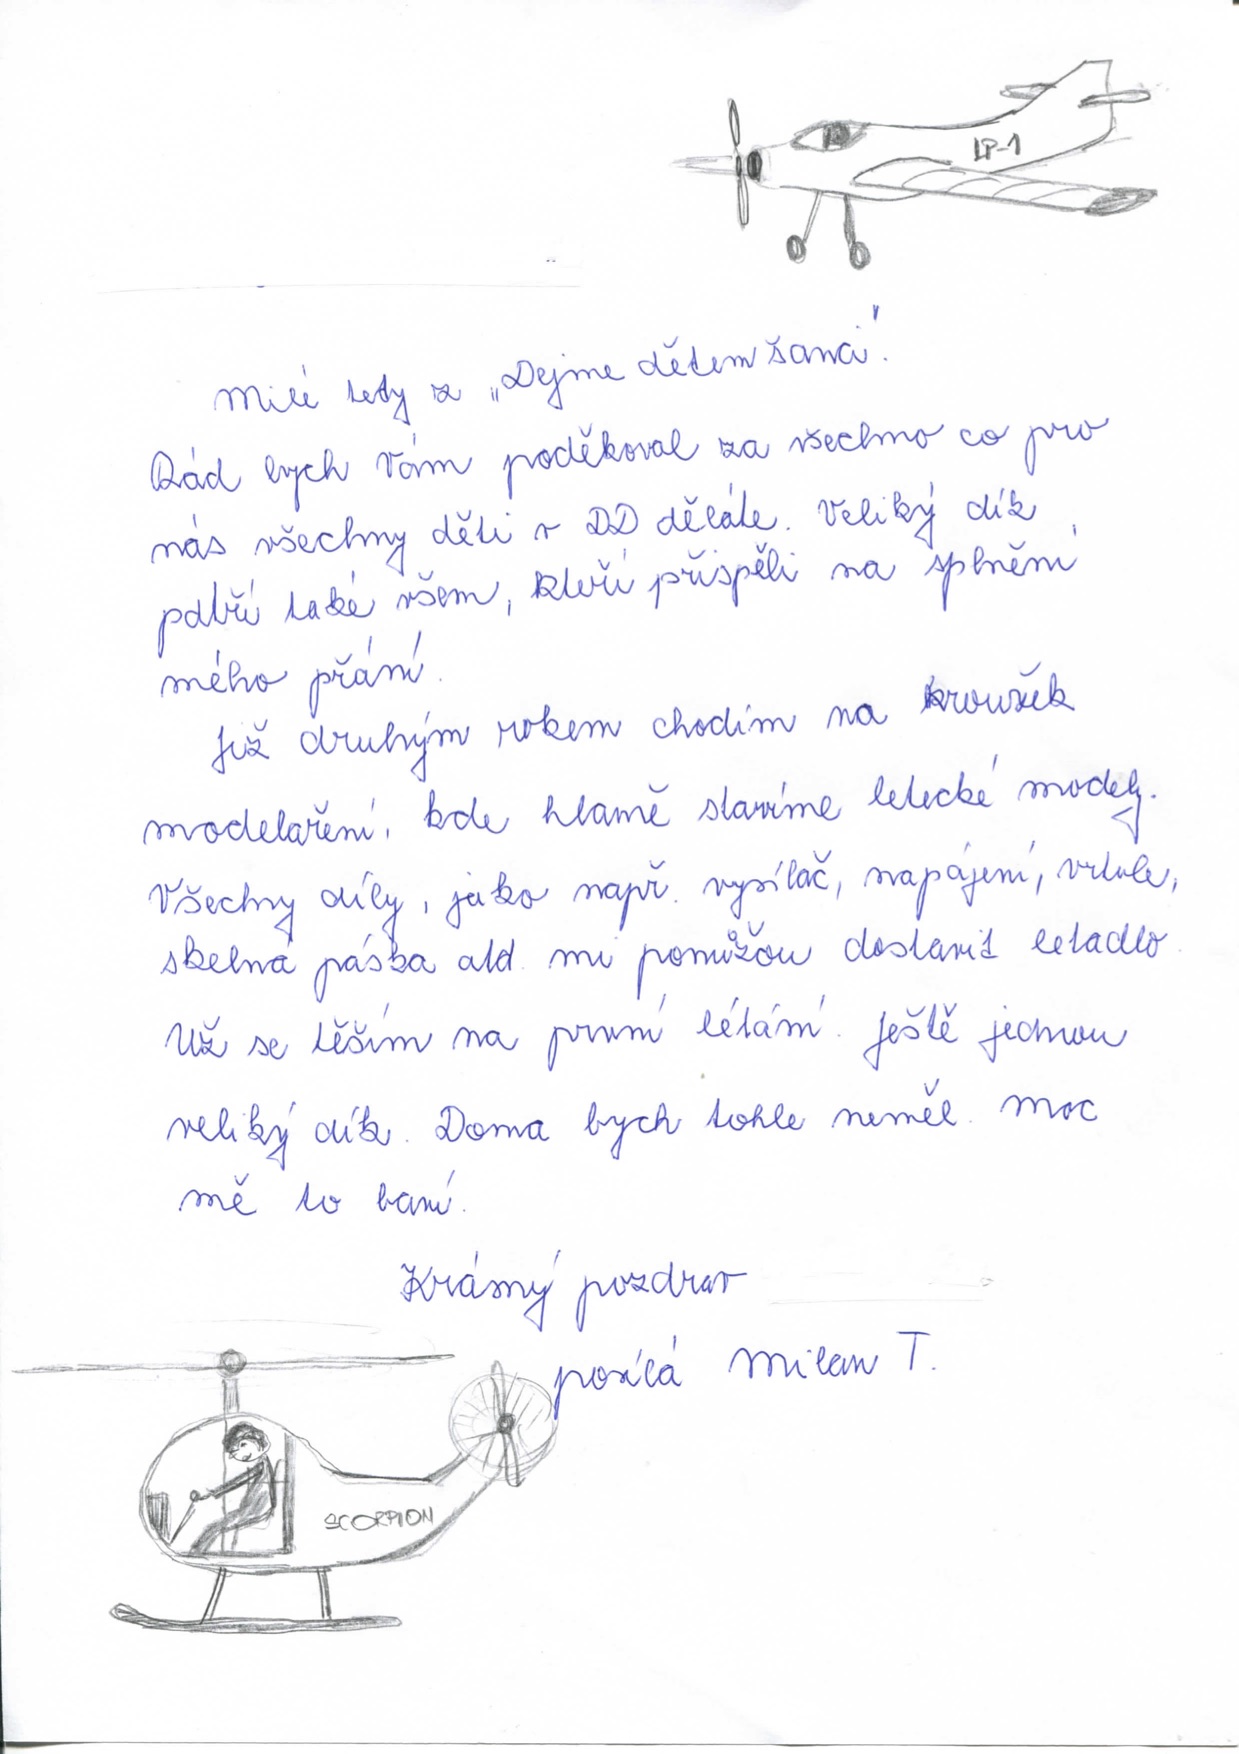 LP-1
Milé tety z „Dejme dětem šanci".
Rád bych Vám poděkoval za všechno co pro
nás všechny děti v DD děláte. Veliký dík
patří také všem, kteří přispěli na splnění
mého přání.
Již druhým rokem chodím na kroužek
modelaření, kde hlavně stavíme letecké modely.
Všechny díly, jako např. vysílač, napájení, vrtule,
skelná páska atd. mi pomůžou dostavit letadlo.
Už se těším na první létání. Ještě jednou
veliký dík. Doma bych tohle neměl. Moc
mě to baví.
Krásný pozdrav
posílá Milan T.
SCORPION